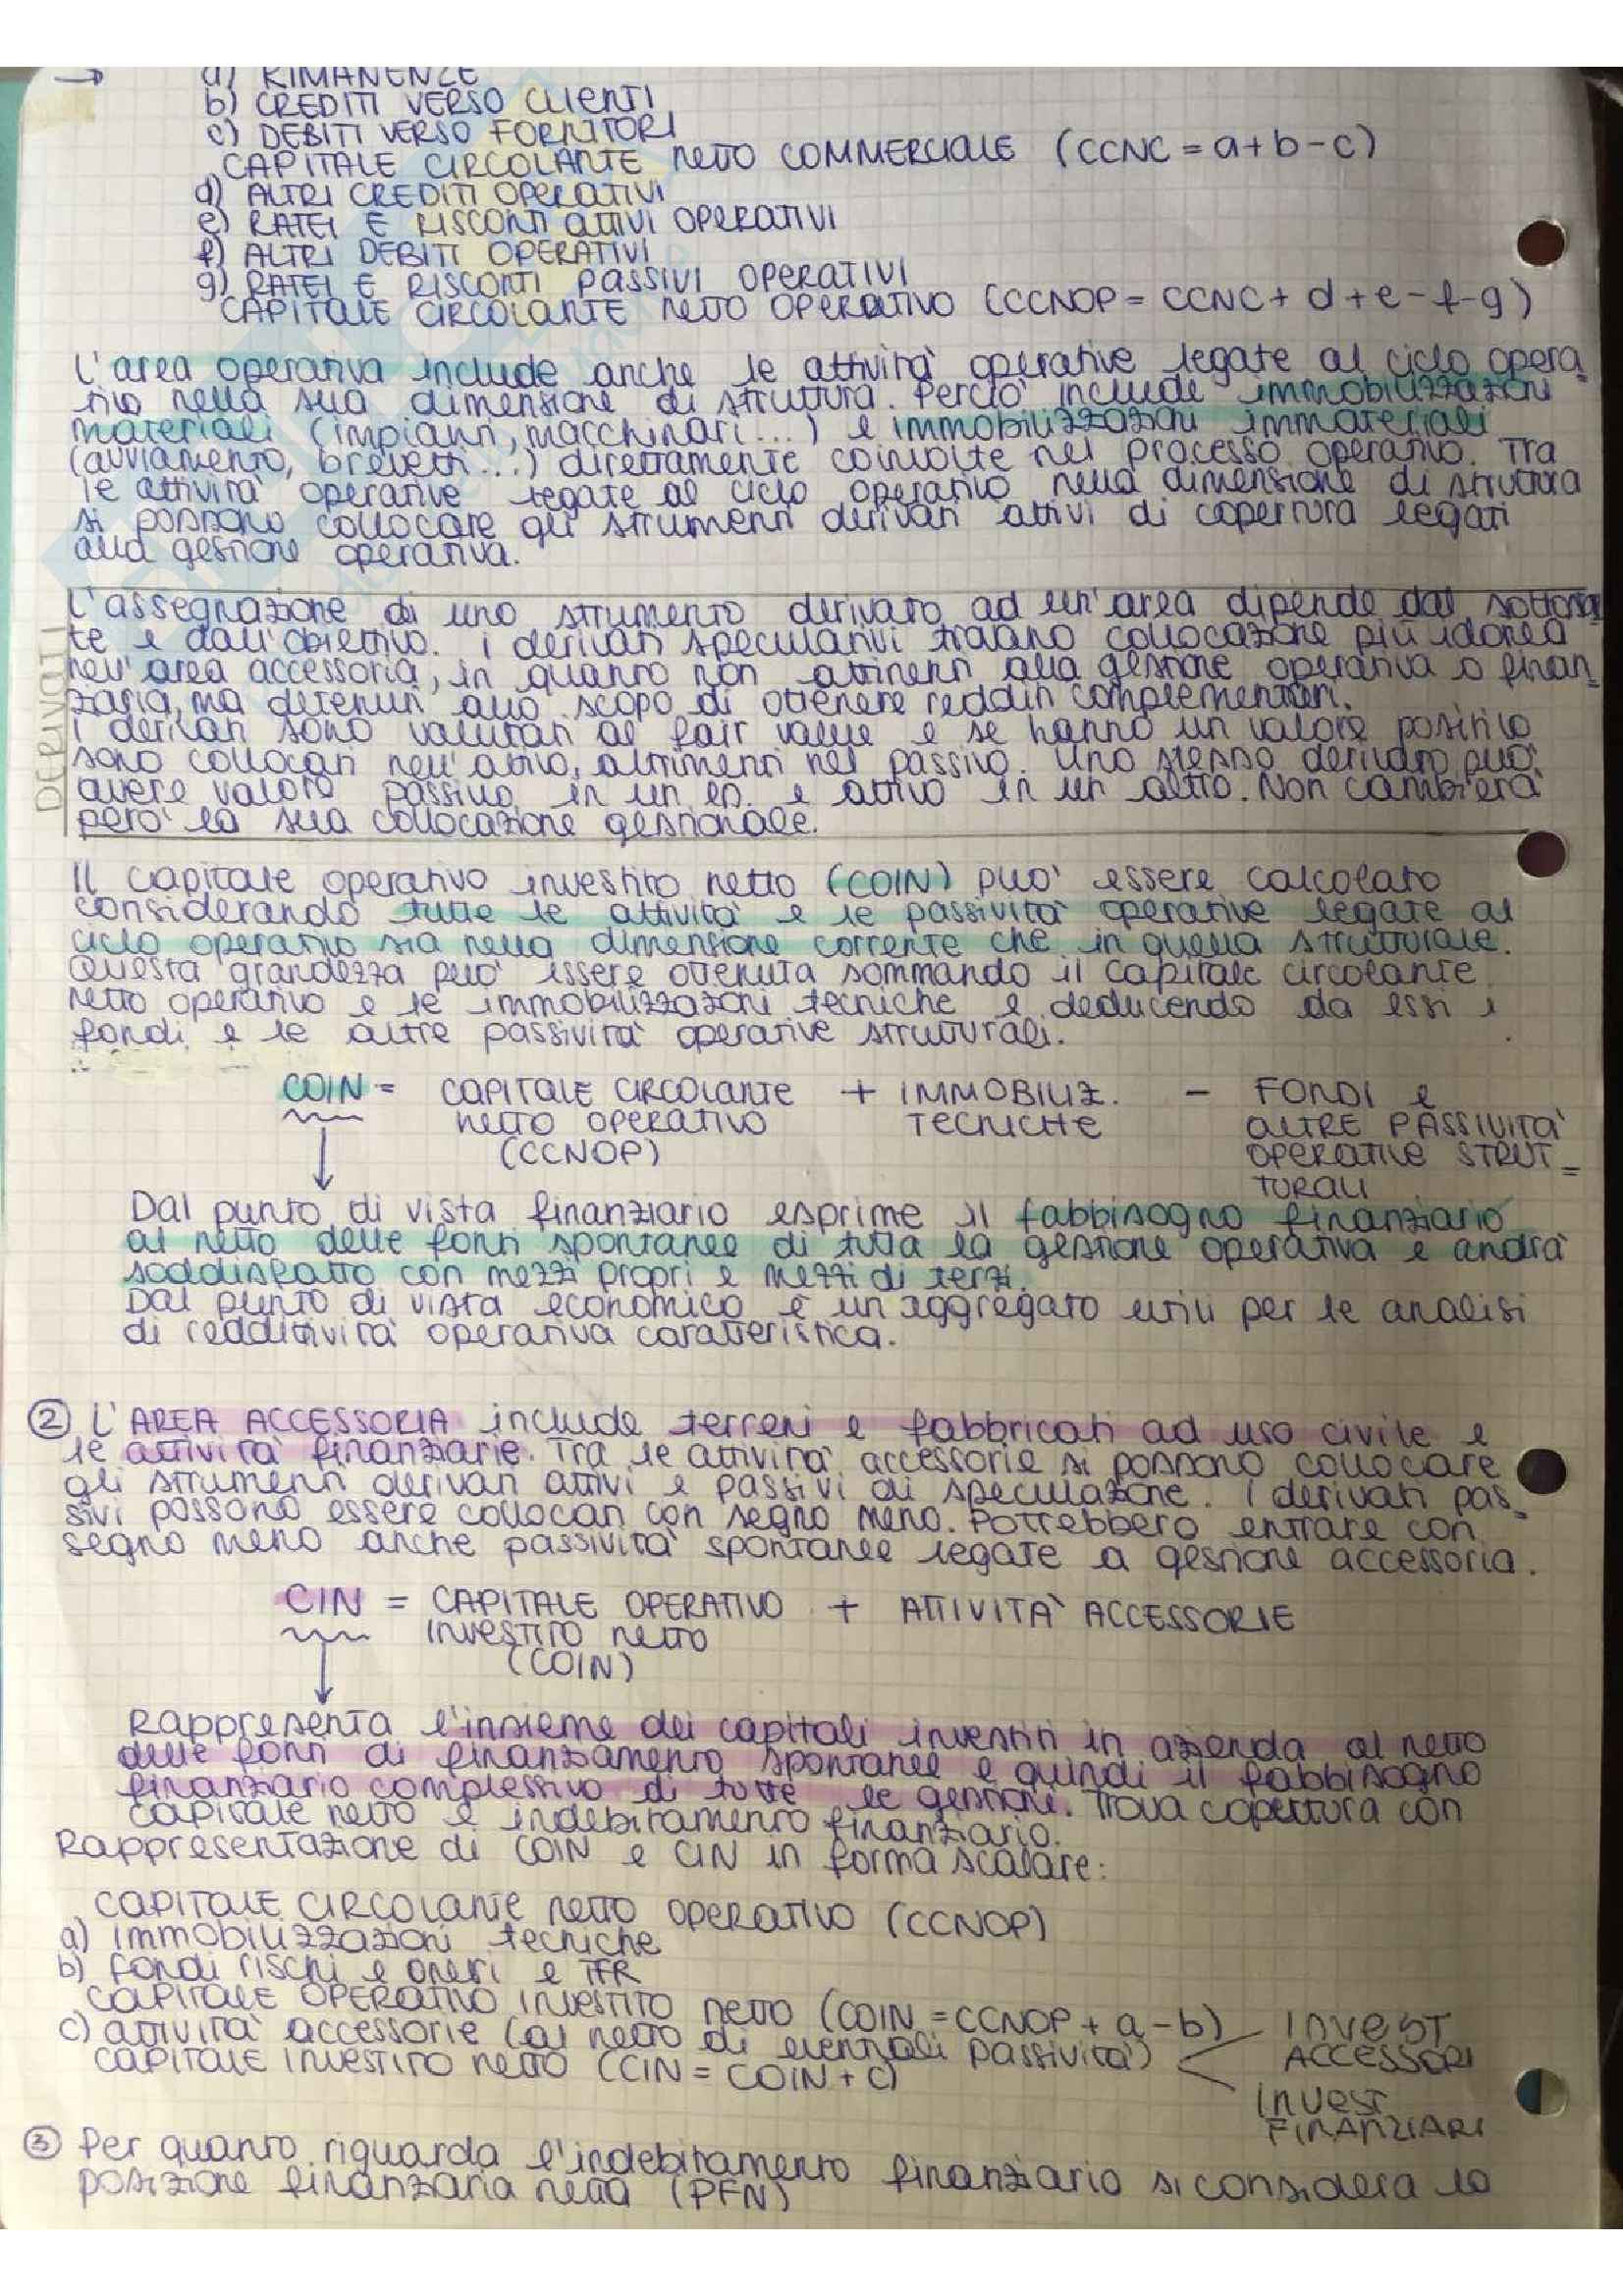 → a) RIMANENZE
b) CREDITI VERSO CLIENTI
c) DEBITI VERSO FORNITORI
CAPITALE CIRCOLANTE NETTO COMMERCIALE (CCNC = a+b-c)
d) ALTRI CREDITI OPERATIVI
e) RATEI E RISCONTI ATTIVI OPERATIVI
f) ALTRI DEBITI OPERATIVI
g) RATEI E RISCONTI PASSIVI OPERATIVI
CAPITALE CIRCOLANTE NETTO OPERATIVO (CCNOP = CCNC + d + e - f - g)
L'area operativa include anche le attività operative legate al ciclo opera_
tivo nella sua dimensione di struttura. Perciò include immobilizzazioni
materiali (impianti, macchinari...) e immobilizzazioni immateriali
(avviamento, brevetti...) direttamente coinvolte nel processo operativo. Tra
le attività operative legate al ciclo operativo nella dimensione di struttura
si possono collocare gli strumenti derivati attivi di copertura legati
alla gestione operativa.
DERIVATI
L'assegnazione di uno strumento derivato ad un'area dipende dal sottostan
te e dall'obiettivo. I derivati speculativi trovano collocazione più idonea
nell'area accessoria, in quanto non attinenti alla gestione operativa o finan_
ziaria, ma detenuti allo scopo di ottenere redditi complementari.
I derivati sono valutati al fair value e se hanno un valore positivo
sono collocati nell'attivo, altrimenti nel passivo. Uno stesso derivato può
avere valore passivo in un es. e attivo in un altro. Non cambierà
però la sua collocazione gestionale.
Il capitale operativo investito netto (COIN) può essere calcolato
considerando tutte le attività e le passività operative legate al
ciclo operativo sia nella dimensione corrente che in quella strutturale.
Questa grandezza può essere ottenuta sommando il capitale circolante
netto operativo e le immobilizzazioni tecniche e deducendo da essi i
fondi e le altre passività operative strutturali.
COIN = CAPITALE CIRCOLANTE + IMMOBILIZ. - FONDI e
NETTO OPERATIVO TECNICHE ALTRE PASSIVITÀ
(CCNOP) OPERATIVE STRUT_
TURALI
Dal punto di vista finanziario esprime il fabbisogno finanziario
al netto delle fonti spontanee di tutta la gestione operativa e andrà
soddisfatto con mezzi propri e mezzi di terzi.
Dal punto di vista economico è un aggregato utili per le analisi
di redditività operativa caratteristica.
② L'AREA ACCESSORIA include terreni e fabbricati ad uso civile e
le attività finanziarie. Tra le attività accessorie si possono collocare
gli strumenti derivati attivi e passivi di speculazione. I derivati pas_
sivi possono essere collocati con segno meno. Potrebbero entrare con
segno meno anche passività spontanee legate a gestione accessoria.
CIN = CAPITALE OPERATIVO + ATTIVITÀ ACCESSORIE
INVESTITO NETTO
(COIN)
Rappresenta l'insieme dei capitali investiti in azienda al netto
delle fonti di finanziamento spontanee e quindi il fabbisogno
finanziario complessivo di tutte le gestioni. Trova copertura con
capitale netto e indebitamento finanziario.
Rappresentazione di COIN e CIN in forma scalare:
CAPITALE CIRCOLANTE NETTO OPERATIVO (CCNOP)
a) immobilizzazioni tecniche
b) fondi rischi e oneri e TFR
CAPITALE OPERATIVO INVESTITO NETTO (COIN = CCNOP + a - b)
c) attività accessorie (al netto di eventuali passività) INVEST ACCESSORI
CAPITALE INVESTITO NETTO (CIN = COIN + c)
INVEST
FINANZIARI
③ Per quanto riguarda l'indebitamento finanziario si considera la
posizione finanziaria netta (PFN)